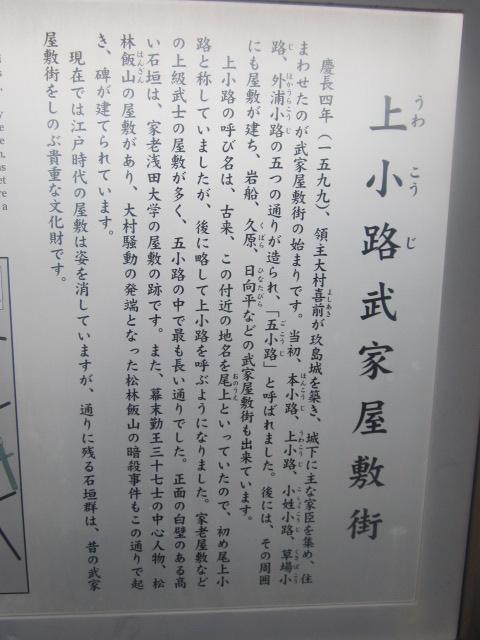 上小路武家屋敷街
うわ こう じ
慶長四年（一五九九）、領主大村喜前が玖島城を築き、城下に主な家臣を集め、住
よしあき
まわせたのが武家屋敷街の始まりです。当初、本小路、上小路、小姓小路、草場小
ほんこうじ うわこうじ こしょうこうじ くさばこう
路、外浦小路の五つの通りが造られ、「五小路」と呼ばれました。後には、その周囲
じ ほかうらこうじ ごこうじ
にも屋敷が建ち、岩船、久原、日向平などの武家屋敷街も出来ています。
くばら ひなたびら
上小路の呼び名は、古来、この付近の地名を尾上といっていたので、初め尾上小
おのうえ
路と称していましたが、後に略して上小路を呼ぶようになりました。家老屋敷など
の上級武士の屋敷が多く、五小路の中で最も長い通りでした。正面の白壁のある高
い石垣は、家老浅田大学の屋敷の跡です。また、幕末勤王三十七士の中心人物、松
林飯山の屋敷があり、大村騒動の発端となった松林飯山の暗殺事件もこの通りで起
はんざん
き、碑が建てられています。
現在では江戸時代の屋敷は姿を消していますが、通りに残る石垣群は、昔の武家
屋敷街をしのぶ貴重な文化財です。